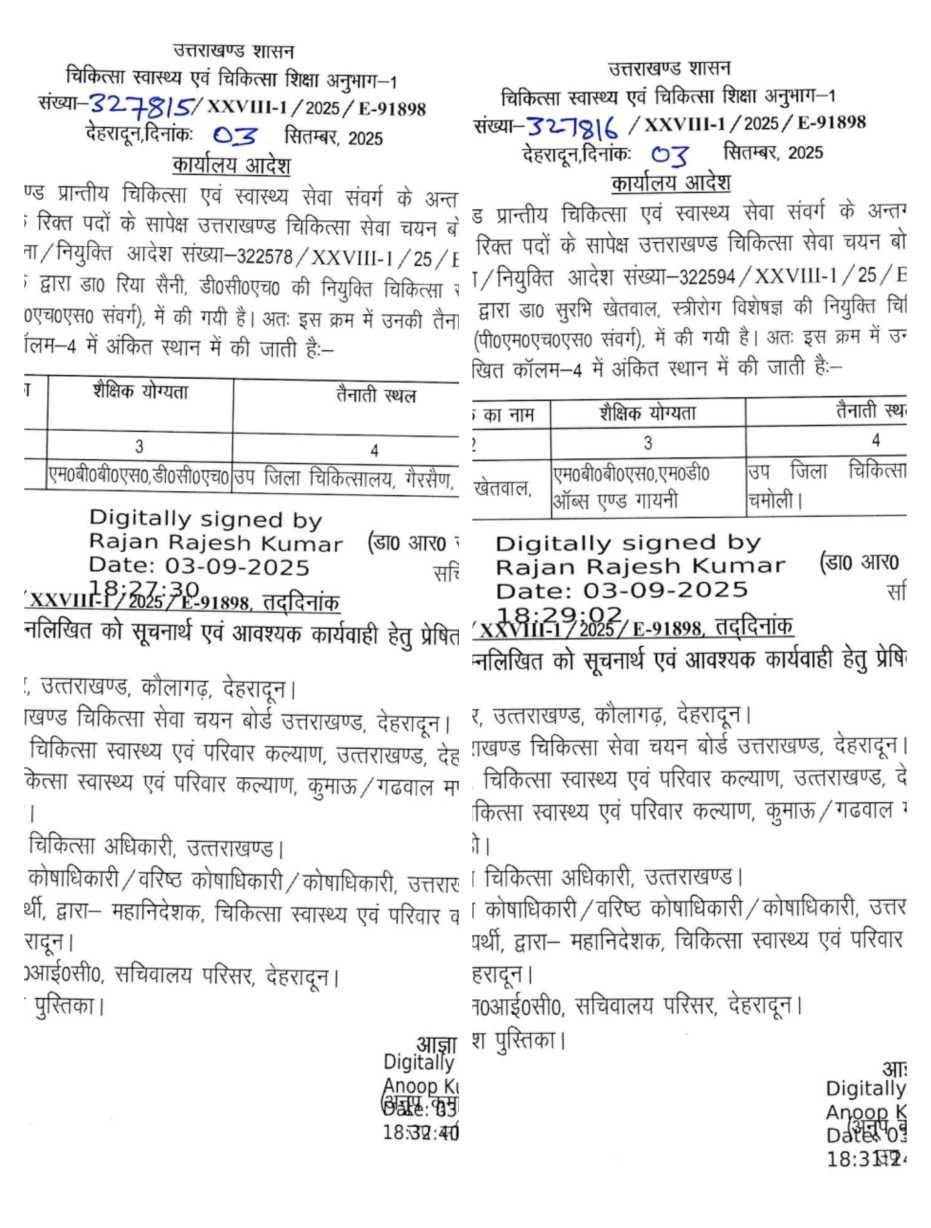 उत्तराखण्ड शासन
चिकित्सा स्वास्थ्य एवं चिकित्सा शिक्षा अनुभाग–1
संख्या–327815/XXVIII-1/2025/E-91898
देहरादून,दिनांकः 03 सितम्बर, 2025
कार्यालय आदेश
ण्ड प्रान्तीय चिकित्सा एवं स्वास्थ्य सेवा संवर्ग के अन्त
रिक्त पदों के सापेक्ष उत्तराखण्ड चिकित्सा सेवा चयन बो
/नियुक्ति आदेश संख्या–322578/XXVIII-1/25/E
द्वारा डा0 रिया सैनी, डी0सी0एच0 की नियुक्ति चिकित्सा
0एच0एस0 संवर्ग), में की गयी है। अतः इस क्रम में उनकी तैना
ॉलम–4 में अंकित स्थान में की जाती हैः–
शैक्षिक योग्यता तैनाती स्थल
3 4
एम0बी0बी0एस0,डी0सी0एच0 उप जिला चिकित्सालय, गैरसैण,
Digitally signed by
Rajan Rajesh Kumar (डा0 आर0
Date: 03-09-2025 सचि
18:27:30
/XXVIII-1/2025/E-91898, तद्दिनांक
नलिखित को सूचनार्थ एवं आवश्यक कार्यवाही हेतु प्रेषित
, उत्तराखण्ड, कौलागढ़, देहरादून।
ाखण्ड चिकित्सा सेवा चयन बोर्ड उत्तराखण्ड, देहरादून।
चिकित्सा स्वास्थ्य एवं परिवार कल्याण, उत्तराखण्ड, देह
कित्सा स्वास्थ्य एवं परिवार कल्याण, कुमाऊ/गढवाल म
।
चिकित्सा अधिकारी, उत्तराखण्ड।
कोषाधिकारी/वरिष्ठ कोषाधिकारी/कोषाधिकारी, उत्तरा
र्थी, द्वारा– महानिदेशक, चिकित्सा स्वास्थ्य एवं परिवार क
रादून।
0आई0सी0, सचिवालय परिसर, देहरादून।
पुस्तिका।
आज्ञा
Digitally
Anoop Ku
(अनूप कुमा
Date: 03
18:32:40
उत्तराखण्ड शासन
चिकित्सा स्वास्थ्य एवं चिकित्सा शिक्षा अनुभाग–1
संख्या–327816 /XXVIII-1/2025/E-91898
देहरादून,दिनांकः 03 सितम्बर, 2025
कार्यालय आदेश
ड प्रान्तीय चिकित्सा एवं स्वास्थ्य सेवा संवर्ग के अन्तर्
रिक्त पदों के सापेक्ष उत्तराखण्ड चिकित्सा सेवा चयन बो
/नियुक्ति आदेश संख्या–322594/XXVIII-1/25/E
द्वारा डा0 सुरभि खेतवाल, स्त्रीरोग विशेषज्ञ की नियुक्ति चि
(पी0एम0एच0एस0 संवर्ग), में की गयी है। अतः इस क्रम में उन
खित कॉलम–4 में अंकित स्थान में की जाती हैः–
का नाम शैक्षिक योग्यता तैनाती स्थ
2 3 4
खेतवाल, एम0बी0बी0एस0,एम0डी0 उप जिला चिकित्सा
ऑब्स एण्ड गायनी चमोली।
Digitally signed by
Rajan Rajesh Kumar (डा0 आर0
Date: 03-09-2025 सचि
18:29:02
/XXVIII-1/2025/E-91898, तद्दिनांक
नलिखित को सूचनार्थ एवं आवश्यक कार्यवाही हेतु प्रेषि
र, उत्तराखण्ड, कौलागढ़, देहरादून।
ाखण्ड चिकित्सा सेवा चयन बोर्ड उत्तराखण्ड, देहरादून।
चिकित्सा स्वास्थ्य एवं परिवार कल्याण, उत्तराखण्ड, दे
कित्सा स्वास्थ्य एवं परिवार कल्याण, कुमाऊ/गढवाल
ी।
चिकित्सा अधिकारी, उत्तराखण्ड।
कोषाधिकारी/वरिष्ठ कोषाधिकारी/कोषाधिकारी, उत्तर
यर्थी, द्वारा– महानिदेशक, चिकित्सा स्वास्थ्य एवं परिवार
हरादून।
न0आई0सी0, सचिवालय परिसर, देहरादून।
श पुस्तिका।
आज्ञ
Digitally
Anoop K
(अनूप क
Date: 03
18:31:24